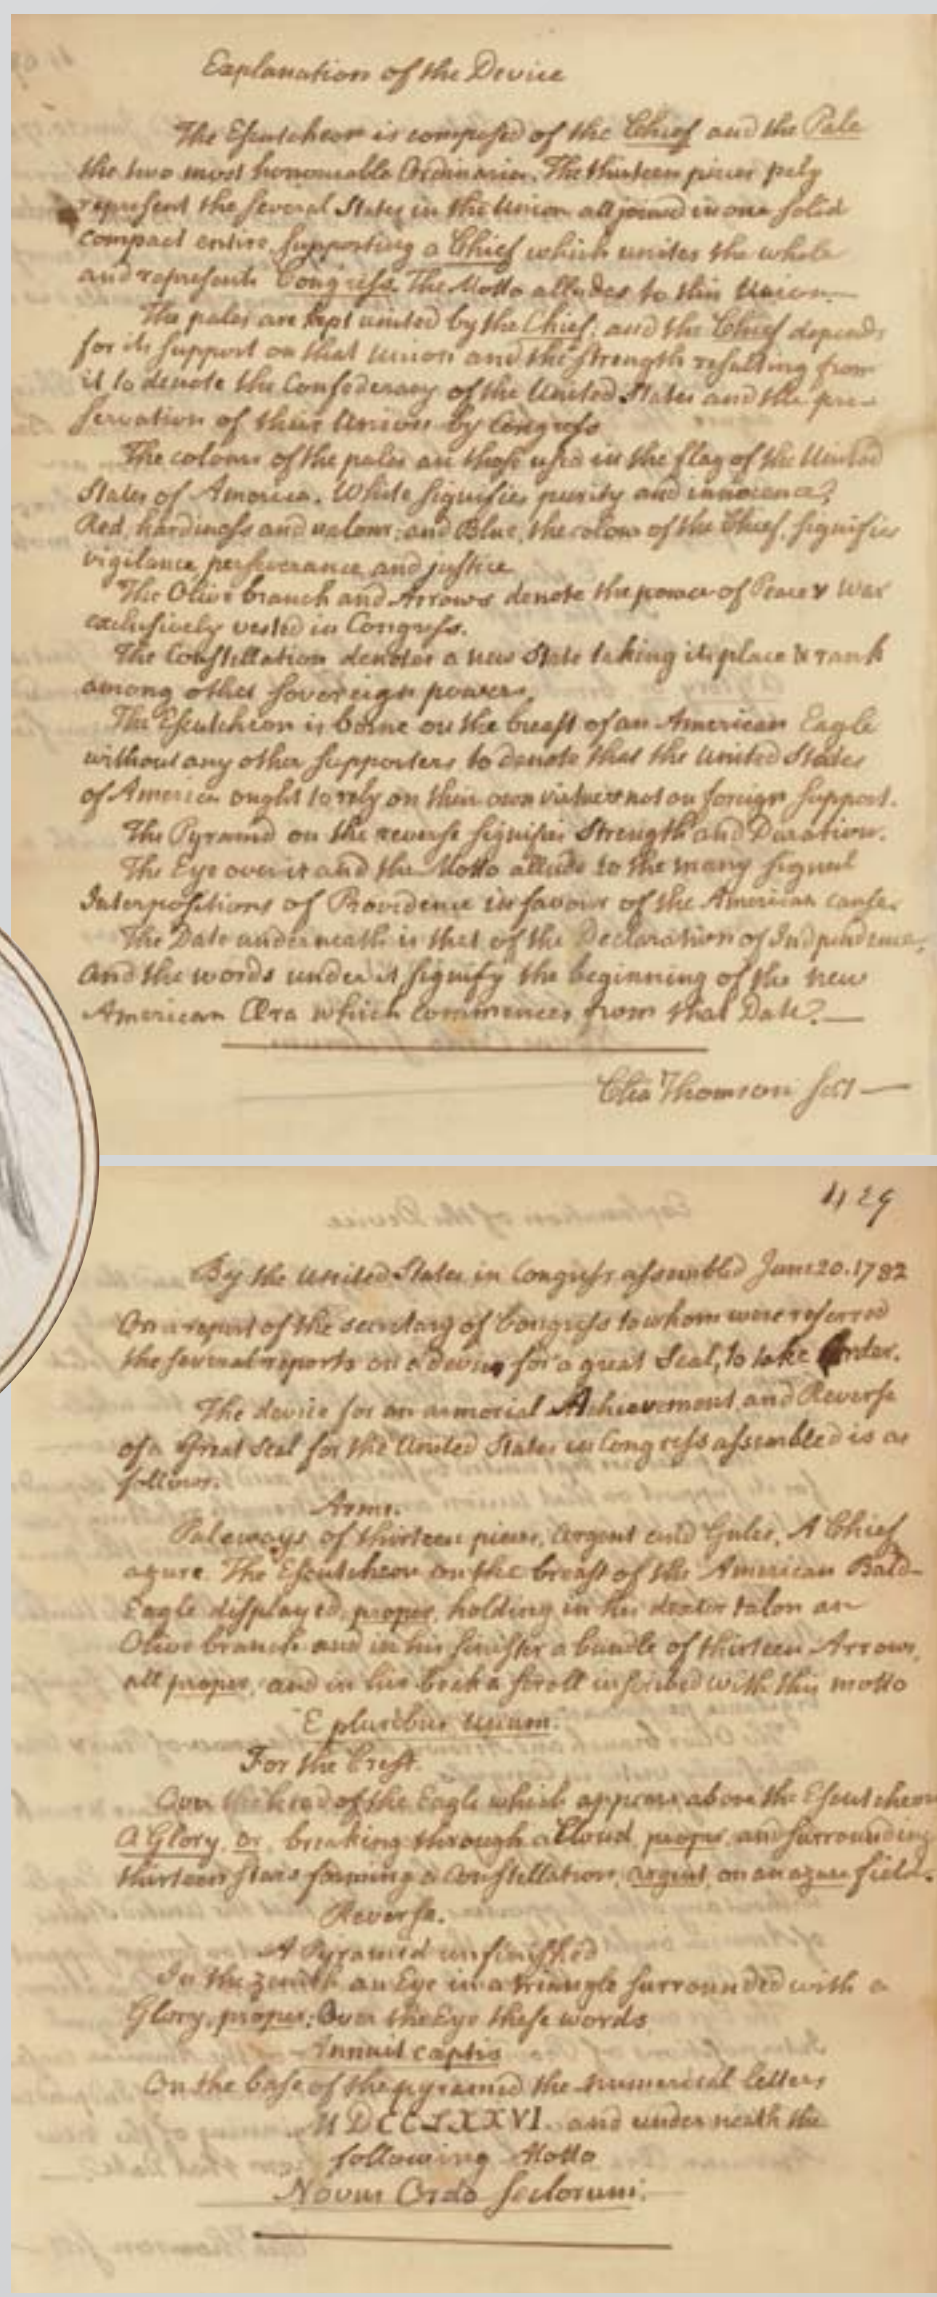 Explanation of the Device
The Escutcheon is composed of the Chief and the Pale
the two most honourable Ordinaries. The thirteen pieces paly
represent the several States in the Union all joined in one solid
compact entire, supporting a Chief which unites the whole
and represents Congress. The Motto alludes to this Union.
The pales are kept united by the Chief; and the Chief depends
for its support on that Union and the strength resulting from
it to denote the Confederacy of the United States and the pre-
servation of their Union by Congress
The colours of the pales are those used in the flag of the United
States of America. White signifies purity and innocence,
Red, hardiness and valour, and Blue, the colour of the Chief, signifies
vigilance perseverance and justice
The Olive branch and Arrows denote the power of Peace & War
exclusively vested in Congress.
The Constellation denotes a new State taking its place & rank
among other sovereign powers.
The Escutcheon is borne on the breast of an American Eagle
without any other supporters to denote that the United States
of America ought to rely on their own virtue & not on foreign support.
The Pyramid on the reverse signifies Strength and Duration.
The Eye over it and the Motto allude to the many signal
Interpositions of Providence in favour of the American cause.
The Date underneath is that of the Declaration of Independence,
and the words under it signify the beginning of the new
American Æra which commences from that Date.
Cha Thomson secy
429
By the United States in Congress assembled June 20. 1782
On a report of the secretary of Congress to whom were referred
the several reports on a device for a great Seal, to take Order.
The device for an armorial Achievement and Reverse
of a Great Seal for the United States in Congress assembled is as
follows.
Arms.
Paleways of thirteen pieces, Argent and Gules, A Chief
azure. The Escutcheon on the breast of the American Bald-
Eagle displayed, proper, holding in his dexter talon an
Olive branch and in his sinister a bundle of thirteen Arrows,
all proper, and in his beak a scroll inscribed with this motto
"E pluribus Unum.
For the Crest.
Over the head of the Eagle which appears above the Escutcheon
A Glory, Or, breaking through a Cloud, proper, and surrounding
thirteen stars forming a Constellation, argent, on an azure field.
Reverse.
A Pyramid unfinished
In the zenith an Eye in a triangle surrounded with a
Glory, proper; Over the Eye these words
Annuit cœptis
On the base of the pyramid the numerical letters
MDCCLXXVI. and underneath the
following Motto
Novus Ordo Seclorum.